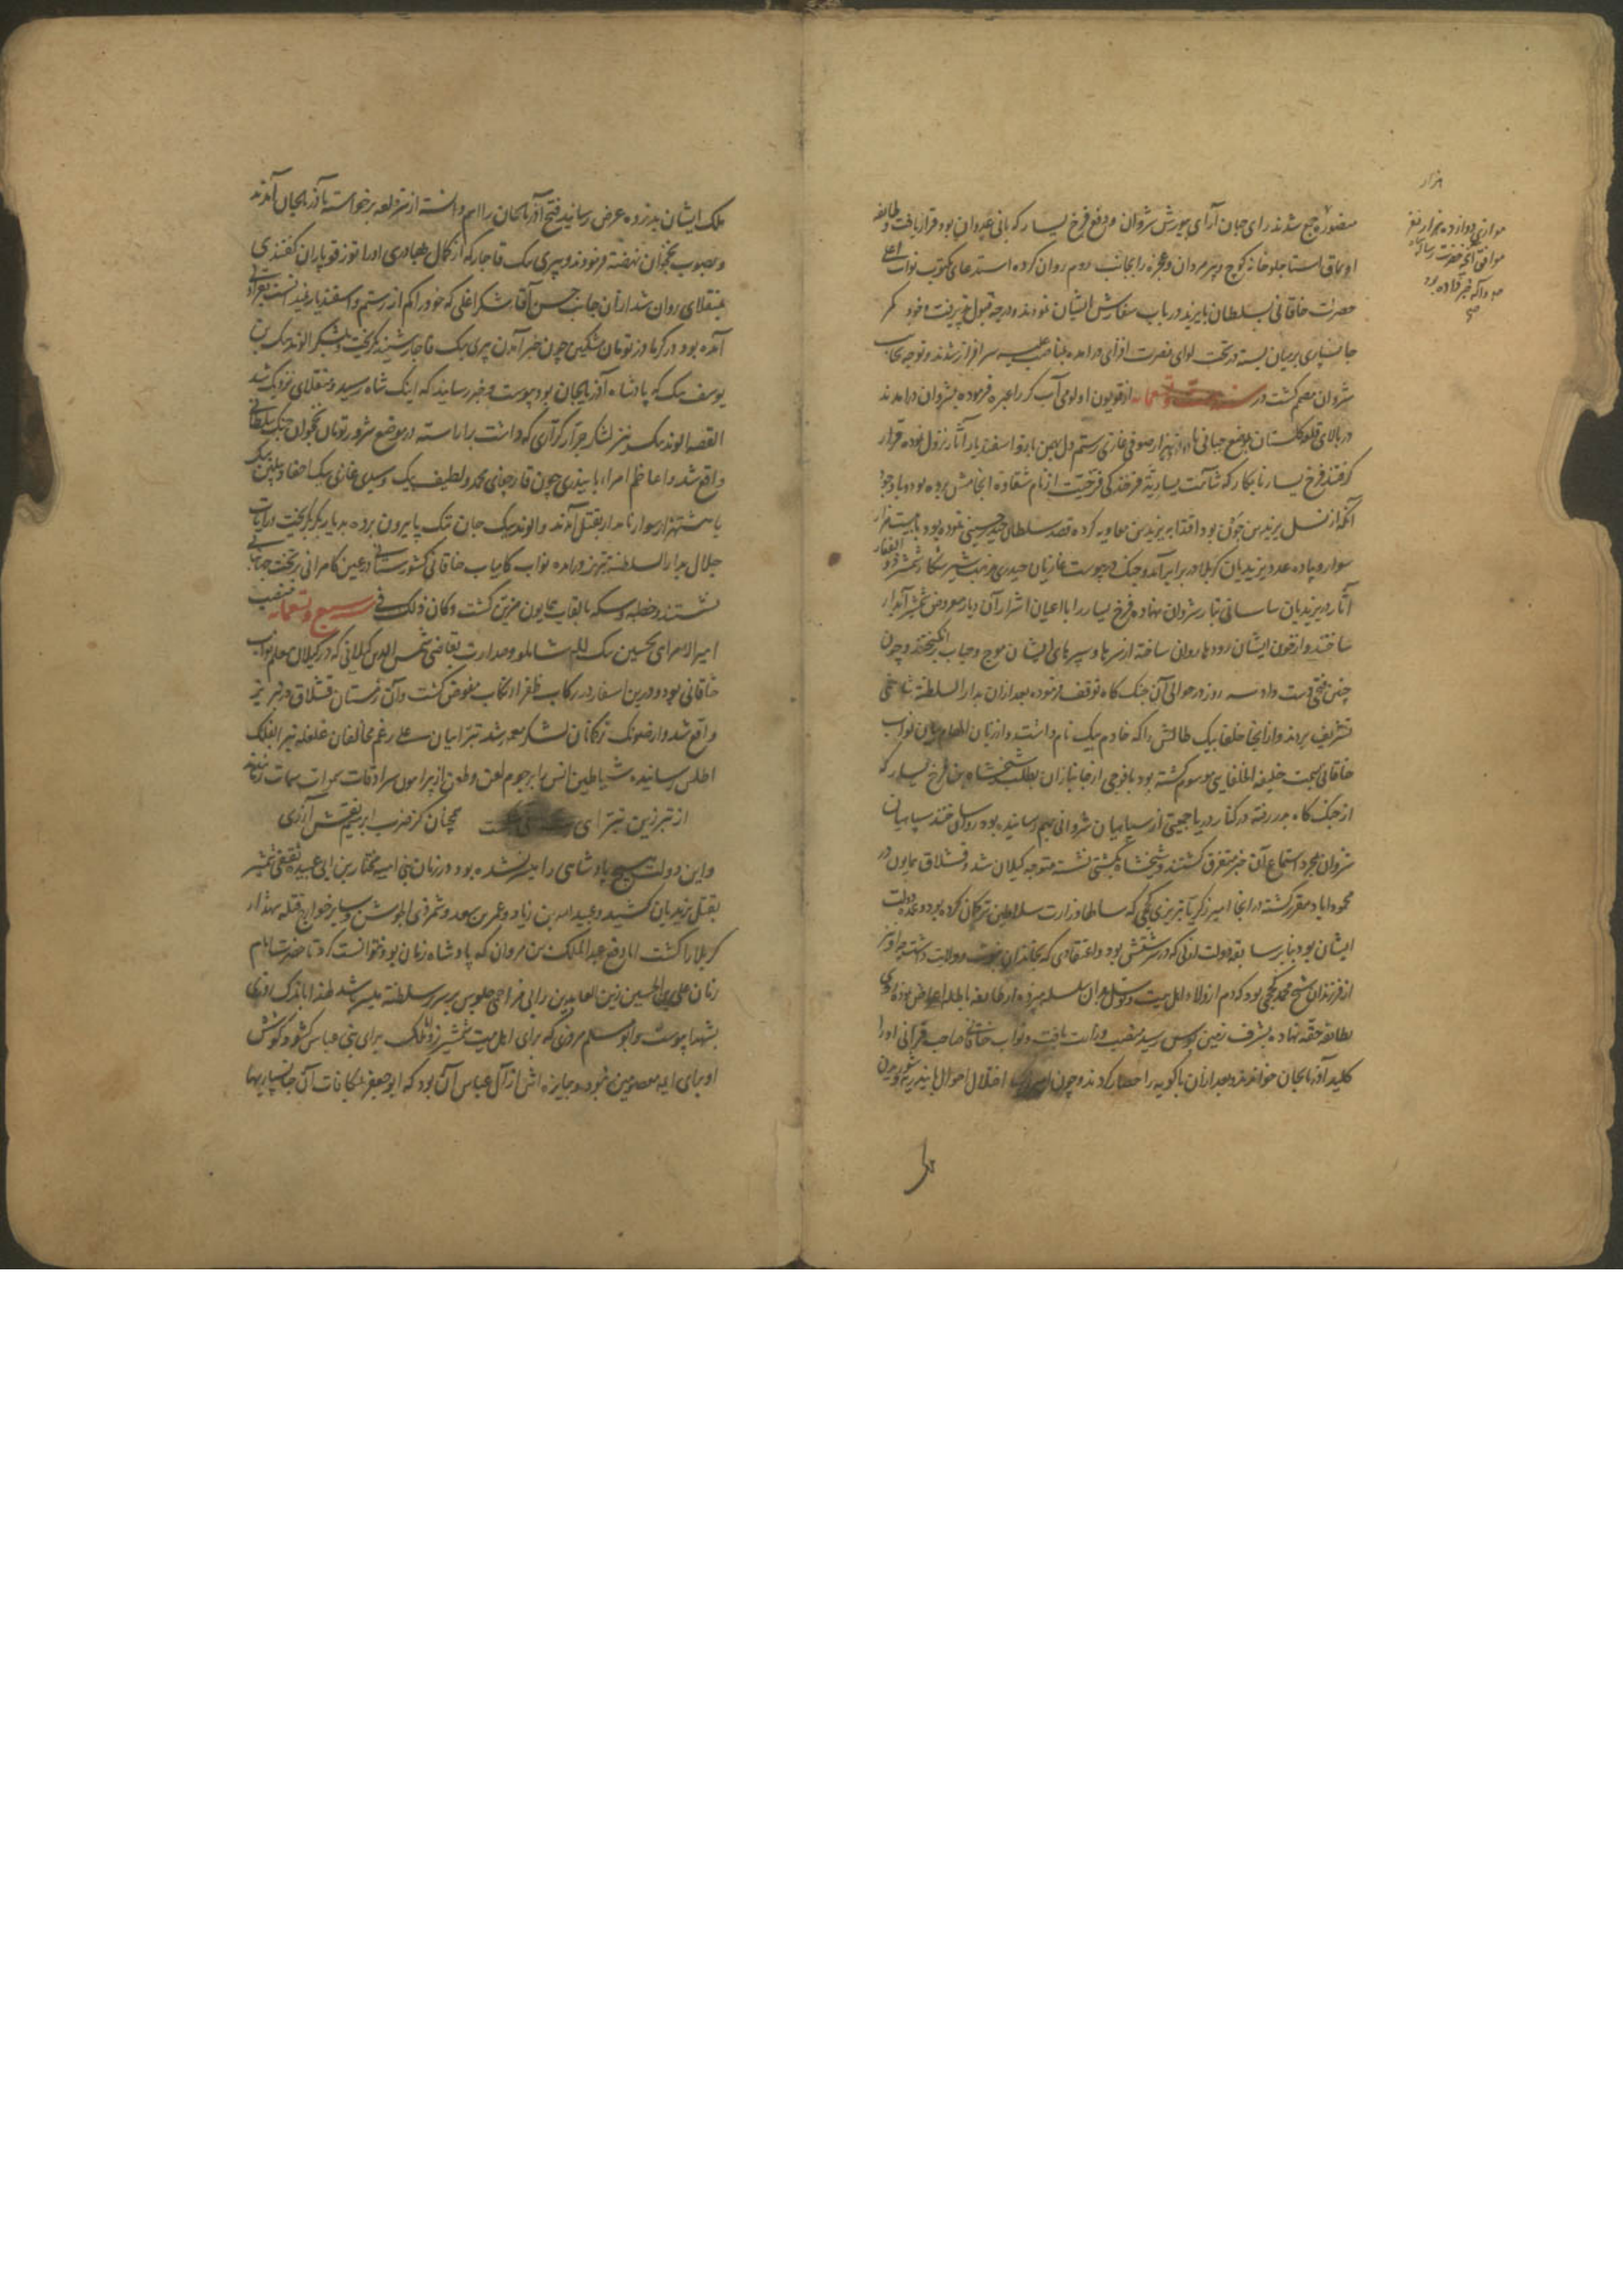 منصوره جمع شدند رای جهان آرای بیورش شروان و دفع فرخ یسار که بانی غدر وان بود قرار یافت و طایفه
اویماق استاجلو خانه کوچ و پیر مردان و عجزه را بجانب روم روان کرده استدعای مکتوب نواب اعلی
حضرت خاقانی بسلطان بایزید در باب سفارش ایشان نمودند و درجه قبول پذیرفت و خود کمر
جانسپاری بر میان بسته در تحت لوای نصرت افزای درآمده بمناصب علیه سرافراز شدند و توجه بجانب
شروان مصمم گشت در سنه ست و تسعمایه از قویون اولومی آب کر را عبره فرموده بشروان درآمدند
در بالای قلعه گلستان بموضع جبانی با دوازده هزار صوفی غازی رستم دل بهمن بازو اسفندیار آثار نزول نموده قرار
گرفتند فرخ یسار نابکار که شآمت یسار
آنکه از نسل یزید بن خون بود اقتدا به یزید بن معاویه کرده قصد سلطان حیدر حسینی نموده بود با بیست هزار
سوار و پیاده عدد یزیدیان کربلا در برابر آمد و جنک درپیوست غازیان حیدری مذهب شیر شکار شمشیر ذوالفقار
آثار در یزیدیان ساسانی تبار شروان نهاده فرخ یسار را با اعیان اشرار آن دیار معروض شمشیر آبدار
ساختند و از خون ایشان رودها روان ساخته از سرها و سپرهای ایشان موج و حباب برانگیختند و چون
چنین فتحی دست داد سه روز در حوالی آن جنک کاه توقف فرموده بعد از آن بدار السلطنه شماخی
تشریف بردند و از آنجا خلفا بیک طالش را که خادم بیک نام داشت و از زبان الهام بیان نواب
خاقانی بهجت خلیفه الخلفایی موسوم گشته بود با فوجی از جانبازان بطلب شیخشاه بن فرخ یسار که
از جنک کاه بدر رفته در کنار دریا جمعیتی از سپاهیان شروانی بهم رسانیده بود روان ساختند سپاهیان
شروان بمجرد استماع آن خبر متفرق گشتند و شیخشاه بکشتی نشسته متوجه گیلان شد و قشلاق همایون در
محموداباد مقرر گشته در آنجا امیر زکریا تبریزی ککجی که سالها وزارت سلاطین ترکمان کرده بود و عمده دولت
ایشان بود بنابر سابقه دولت ازلی که در سرشتش بود و اعتقادی که بخاندان نبوت و ولایت داشت چه او نیز
از فرزندان شیخ محمد ککجی بود که دم از ولاء اهل بیت
بطایفه حقه نهاده بشرف زمین بوس رسید منصب وزارت یافت و نواب خاقانی صاحب قرانی او را
کلید آذربایجان خواندند و بعد از آن باکویه را حصار کردند و چون اختلال احوال بایندریه و بودن
هزار
موازی دوازده هزار نفر
موافق آنچه حضرت
خبر داده بود
صح
ملک ایشان بذروه عرض رسانید فتح آذربایجان را اهم دانسته از سر قلعه برخواسته بآذربایجان آمدند
و بصوب نخجوان نهضت فرمودند و پیری بیک قاجار که از کمال بهادری او را توز قوپاران گفتندی
بمنقلای روان شد از آن جانب حسن آقا شکر اغلی که خود را کم از رستم و اسفندیار نمیدانست بقراولی
آمده بود در گرمادز تومان مشکین چون خبر آمدن پیری بیک قاجار شنید گریخت و بلشکر الوند بیک بن
یوسف بیک که پادشاه آذربایجان بود پیوست و خبر رسانید که اینک شاه رسید و منقلای نزدیک شد
القصه الوند بیک نیز لشکر جرار کراری که داشت بیاراسته در موضع شرور تومان نخجوان جنک سلطانی
واقع شد و اعاظم امراء بایندری چون قارجغای محمد و لطیف بیک و سیدی غازی بیک
با هشت هزار سوار نامدار بقتل آمدند و الوند بیک جان تنک پا بیرون برده بدیار بکر گریخت و رایات
جلال بدار السلطنه تبریز درآمده نواب کامیاب خاقانی کشورستانی در عین کامرانی بر تخت جهانبانی
نشستند و خطبه و سکه بالقاب همایون مزین گشت و کان ذلک فی سنه سبع و تسعمایه منصب
امیر الامرایی بحسین بیک لله شاملو و صدارت بقاضی شمس الدین گیلانی که در گیلان معلم نواب
خاقانی بود و درین اسفار در رکاب ظفر انتساب مفوض گشت و آن زمستان قشلاق در تبریز
واقع شد
اطلس رسانیده شیاطین انس را برجوم لعن و طعن از پیرامون سرادقات
از تبرزین تبرای همچنان کز ضرب ابرهیم نقش آزری
و این دولت هیچ پادشاهی را میسر نشده بود در زمان بنی امیه مختار بن ابی عبیده ثقفی شمشیر
بقتل یزیدیان کشید و عبید الله بن زیاد و عمر بن سعد و شمر ذی الجوشن و سایر خوارج قتله شهداء
کربلا را کشت اما دفع عبد الملک بن مروان که پادشاه زمان بود نتوانست کرد تا حضرت امام
زمان علی بن الحسین زین العابدین را بی مزاحمی جلوس بر سریر سلطنه میسر باشد لهذا باندک فرصتی
بشهدا پیوست و ابو مسلم مروزی که برای اهل بیت شمشیر زد و ملک برای بنی عباس گشود و کوشش
او برای ایمه معصومین نبود و جایزه اش از آل عباس آن بود که ابو جعفر بمکافات آن جانسپاریها